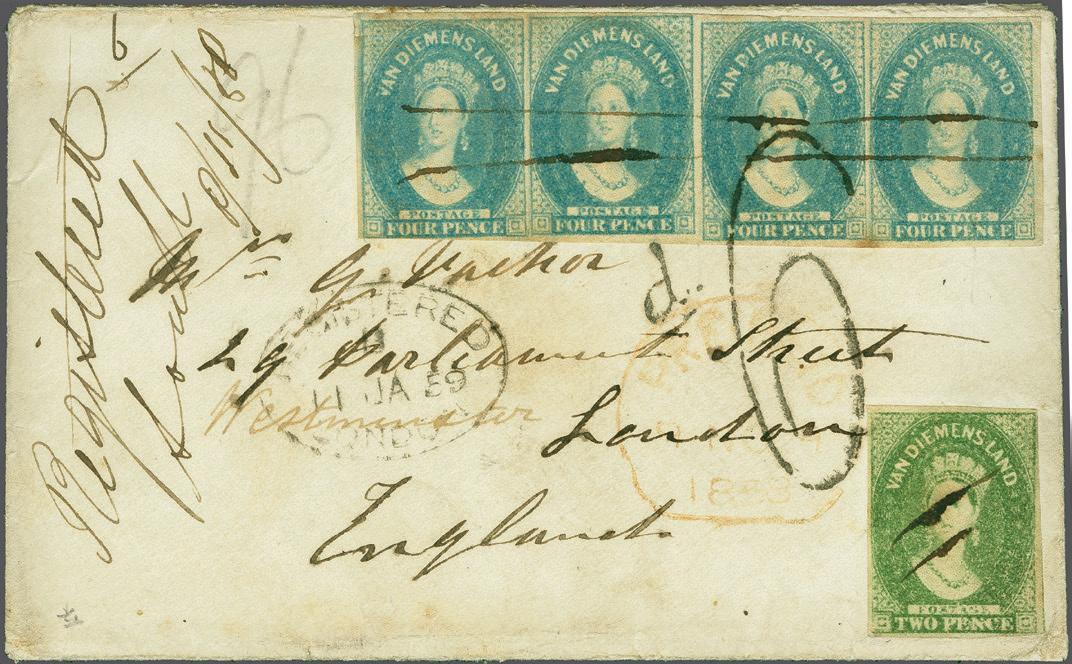 VAN DIEMENS LAND VAN DIEMENS LAND VAN DIEMENS LAND VAN DIEMENS LAND
POSTAGE POSTAGE POSTAGE POSTAGE
FOUR PENCE FOUR PENCE FOUR PENCE FOUR PENCE
Registered
6
9/11/58
Mrs G. Vachor
d.. 6
29 Parliament Street
Westminster
London
England
REGISTERED
11 JA 59
LONDON
PREPAID
VAN DIEMENS LAND
POSTAGE
TWO PENCE